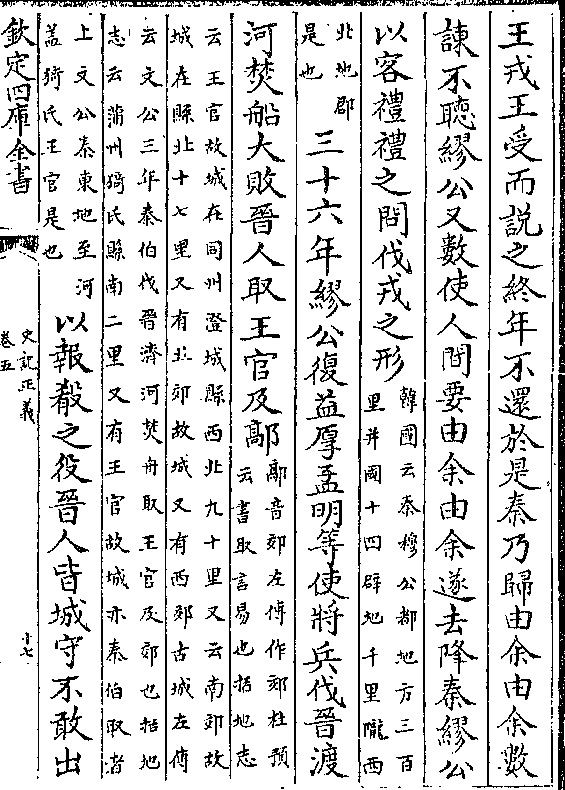 王戎王受而説之終年不還於是秦乃歸由余由余數
諫不聽繆公又數使人間要由余由余遂去降秦繆公
以客禮禮之問伐戎之形
韓國云秦穆公都地方三百
里并國十四辟地千里隴西
北地郡
是也
三十六年繆公復益厚孟明等使將兵伐晉渡
河焚船大敗晉人取王官及鄗
鄗音郊左傳作郊杜預
云書取言易也括地志
云王官故城在同州澄城縣西北九十里又云南郊故
城在縣北十七里又有北郊故城又有西郊古城左傳
云文公三年秦伯伐晉濟河焚舟取王官及郊也括地
志云蒲州猗氏縣南二里又有王官故城亦秦伯取者
上文公秦東地至河
蓋猗氏王官是也
以報殽之役晉人皆城守不敢出
欽定四庫全書
史記正義
卷五
十七